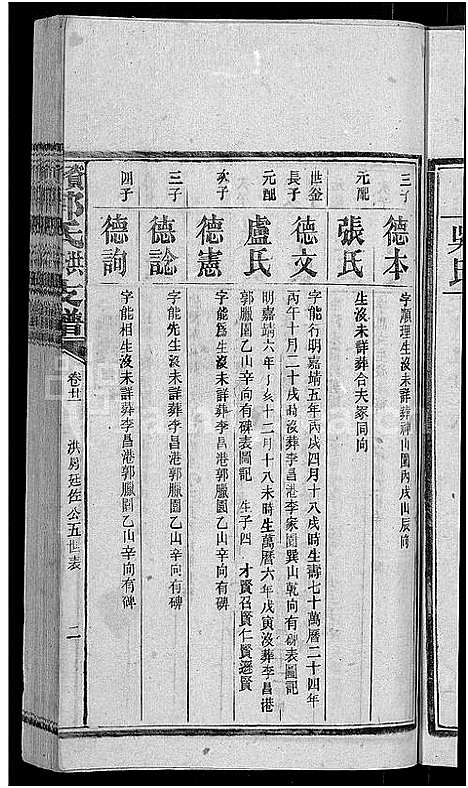 吳氏
三子 德本 字順理生沒未詳葬神山園丙戌山辰向
元配 張氏 生沒未詳葬合夫冢同向
世鑒長子 德文 字能行明嘉靖五年丙戌四月十八戌時生壽七十萬曆二十四年丙午十月二十戌時沒葬李昌港李家園巽山乾向有碑表圖記
元配 盧氏 明嘉靖六年丁亥十二月十八未時生萬曆六年戊寅沒葬李昌港郭臘園乙山辛向有碑表圖記 生子四 才賢召賢仁賢遜賢
次子 德憲 字能為生沒未詳葬李昌港郭臘園乙山辛向有碑
三子 德諗 字能先生沒未詳葬李昌港郭臘園乙山辛向有碑
四子 德詢 字能相生沒未詳葬李昌港郭臘園乙山辛向有碑
氏洪支譜 卷廿一 洪房廷佐公五世表 二